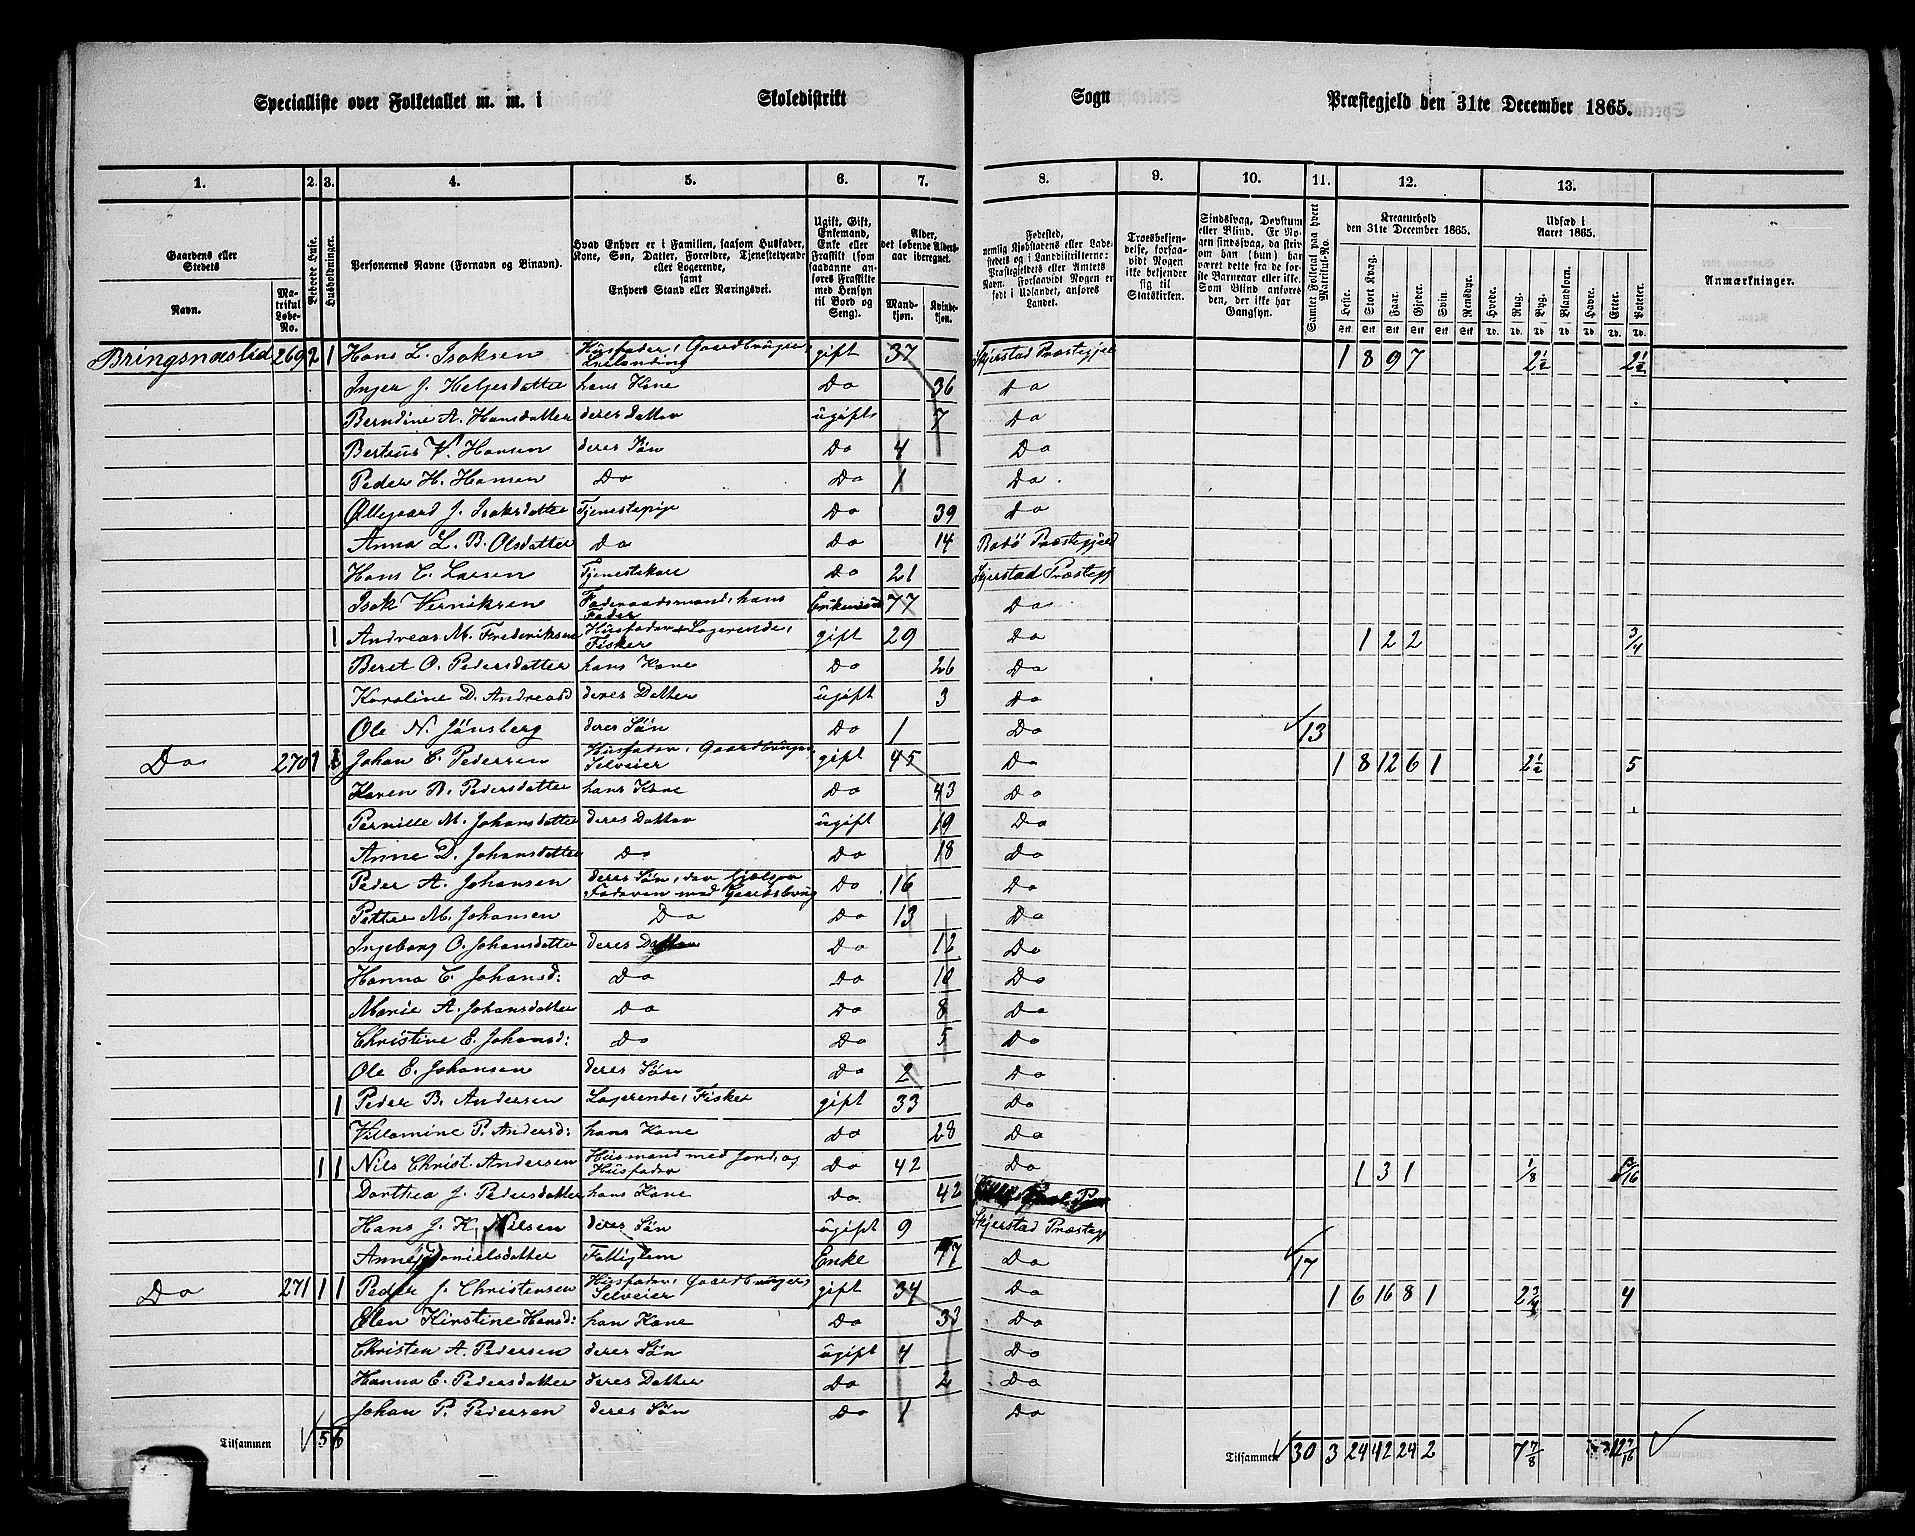 Specialliste over Folketallet m. m. i Skoledistrikt Sogn Præstegjeld den 31te December 1865.
1. 2. 3. 4. 5. 6. 7. 8. 9. 10. 11. 12. 13.
Gaardens eller Stedets
Navn.
Matrikul Løbe-No.
Beboede Huse.
Husholdninger.
Personernes Navne (Fornavn og Binavn).
Hvad Enhver er i Familien, saasom Husfader, Kone, Søn, Datter, Forældre, Tjenestetyende eller Logerende, samt Enhvers Stand eller Næringsvei.
Ugift, Gift, Enkemand, Enke eller Fraskilt (som saadanne anføres Fraskilte med Hensyn til Bord og Seng).
Alder, det løbende Aldersaar iberegnet.
Mandkjøn. Kvindekjøn.
Fødested, nemlig Kjøbstadens eller Ladestedets og i Landdistrikterne: Præstegjeldets eller Amtets Navn. Forsaavidt Nogen er født i Udlandet, anføres Landet.
Troesbekjendelse, forsaavidt Nogen ikke bekjender sig til Statskirken.
Sindssvag, Døvstum eller Blind. Er Nogen sindssvag, da skriv om han (hun) har været dette fra de første Barneaar eller ikke. Som Blind anføres den, der ikke har Gangsyn.
Samlet Folketal paa hvert Matrikul-No.
Kreaturhold den 31te December 1865.
Heste. Stort Kvæg. Faar. Gjeder. Svin. Rensdyr.
Udsæd i Aaret 1865.
Hvede. Rug. Byg. Blandkorn. Havre. Erter. Poteter.
Anmærkninger.
Bringsnæslid 269 2 1 Hans L. Isaksen Husfader, Gaardbruger, Leilending gift 37 Skjerstad Præstegjel 1 8 9 7 2 1/2 2 1/2
Inger J. Helgesdatter hans Kone Do 36 Do
Berndine A. Hansdatter deres Datter ugift 7 Do
Berteus V. Hansen deres Søn Do 4 Do
Peder H. Hansen Do Do 1 Do
Ollegaard J. Isaksdatter Tjenestepige Do 39 Do
Anna L. B. Olsdatter Do Do 14 Bodø Præstegjeld
Hans C. Larsen Tjenestekarl Do 21 Skjerstad Præstegj
Isak Verniksen Føderaadsmand, hans Fader Enkemand 77 Do
1 Andreas M. Frederiksen Husfader Logerende, Fisker gift 29 Do 1 2 2 3/4
Beret O. Pedersdatter hans Kone Do 26 Do
Karoline D. Andreasd deres Datter ugift 3 Do
Ole N. Jönsberg deres Søn Do 1 Do 13
Do 270 1 Johan C. Pedersen Husfader, Gaardbruger, Selveier gift 45 Do 1 8 12 6 1 2 1/2 5
Karen B. Pedersdatter hans Kone Do 43 Do
Pernille M. Johansdatter deres Datter ugift 19 Do
Anne D. Johansdatter Do Do 18 Do
Peder A. Johansen deres Søn, der hjælper Faderen med Gaardsbrug Do 16 Do
Petter M. Johansen Do Do 13 Do
Ingeborg O. Johansdatter deres Datter Do 12 Do
Hanna C. Johansd: Do Do 10 Do
Marie A. Johansdatter Do Do 8 Do
Christine E. Johansd: Do Do 5 Do
Ole E. Johansen deres Søn Do 2 Do
1 Peder B. Andersen Logerende, Fisker gift 33 Do
Villamine P. Andersd: hans Kone Do 28 Do
1 1 Nils Christ. Andersen Husmand med Jord, og Husfader Do 42 Do 1 3 1 1/8
Dorthea J. Pedersdatter hans Kone Do 42
Hans J. K. Nilsen deres Søn ugift 9 Skjerstad Præstegj
Anne Danielsdatter Fattiglem Enke 77 Do 17
Do 271 1 1 Peder J. Christensen Husfader, Gaardbruger, Selveier gift 34 Do 1 6 16 8 1 2 3/4 4
Elen Kirstine Hansd: han Kone Do 33 Do
Christen A. Pedersen deres Søn ugift 4 Do
Hanna E. Pedersdatter deres Datter Do 2 Do
Johan P. Pedersen deres Søn Do 1 Do
Tilsammen 5 6 Tilsammen 30 3 24 42 24 2 7 7/8 12 7/16